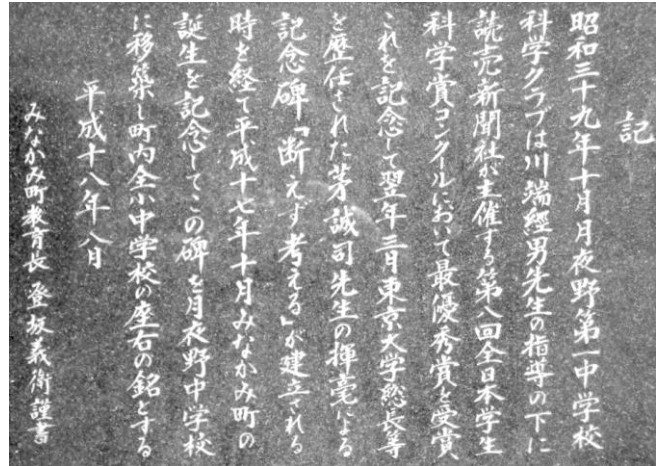 記
昭和三十九年十月月夜野第一中学校
科学クラブは川端經男先生の指導の下に
読売新聞社が主催する第八回全日本学生
科学賞コンクールにおいて最優秀賞を受賞
これを記念して翌年三月東京大学総長等
を歴任された茅誠司先生の揮毫による
記念碑「断えず考える」が建立される
時を経て平成十七年十月みなかみ町の
誕生を記念してこの碑を月夜野中学校
に移築し町内全小中学校の座右の銘とする
平成十八年八月
みなかみ町教育長 登坂義衛謹書